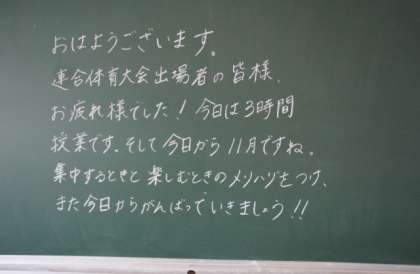 おはようございます。
連合体育大会出場者の皆様、
お疲れ様でした！今日は3時間
授業です。そして今日から11月ですね。
集中するときと楽しむときのメリハリをつけ、
また今日からがんばっていきましょう!!